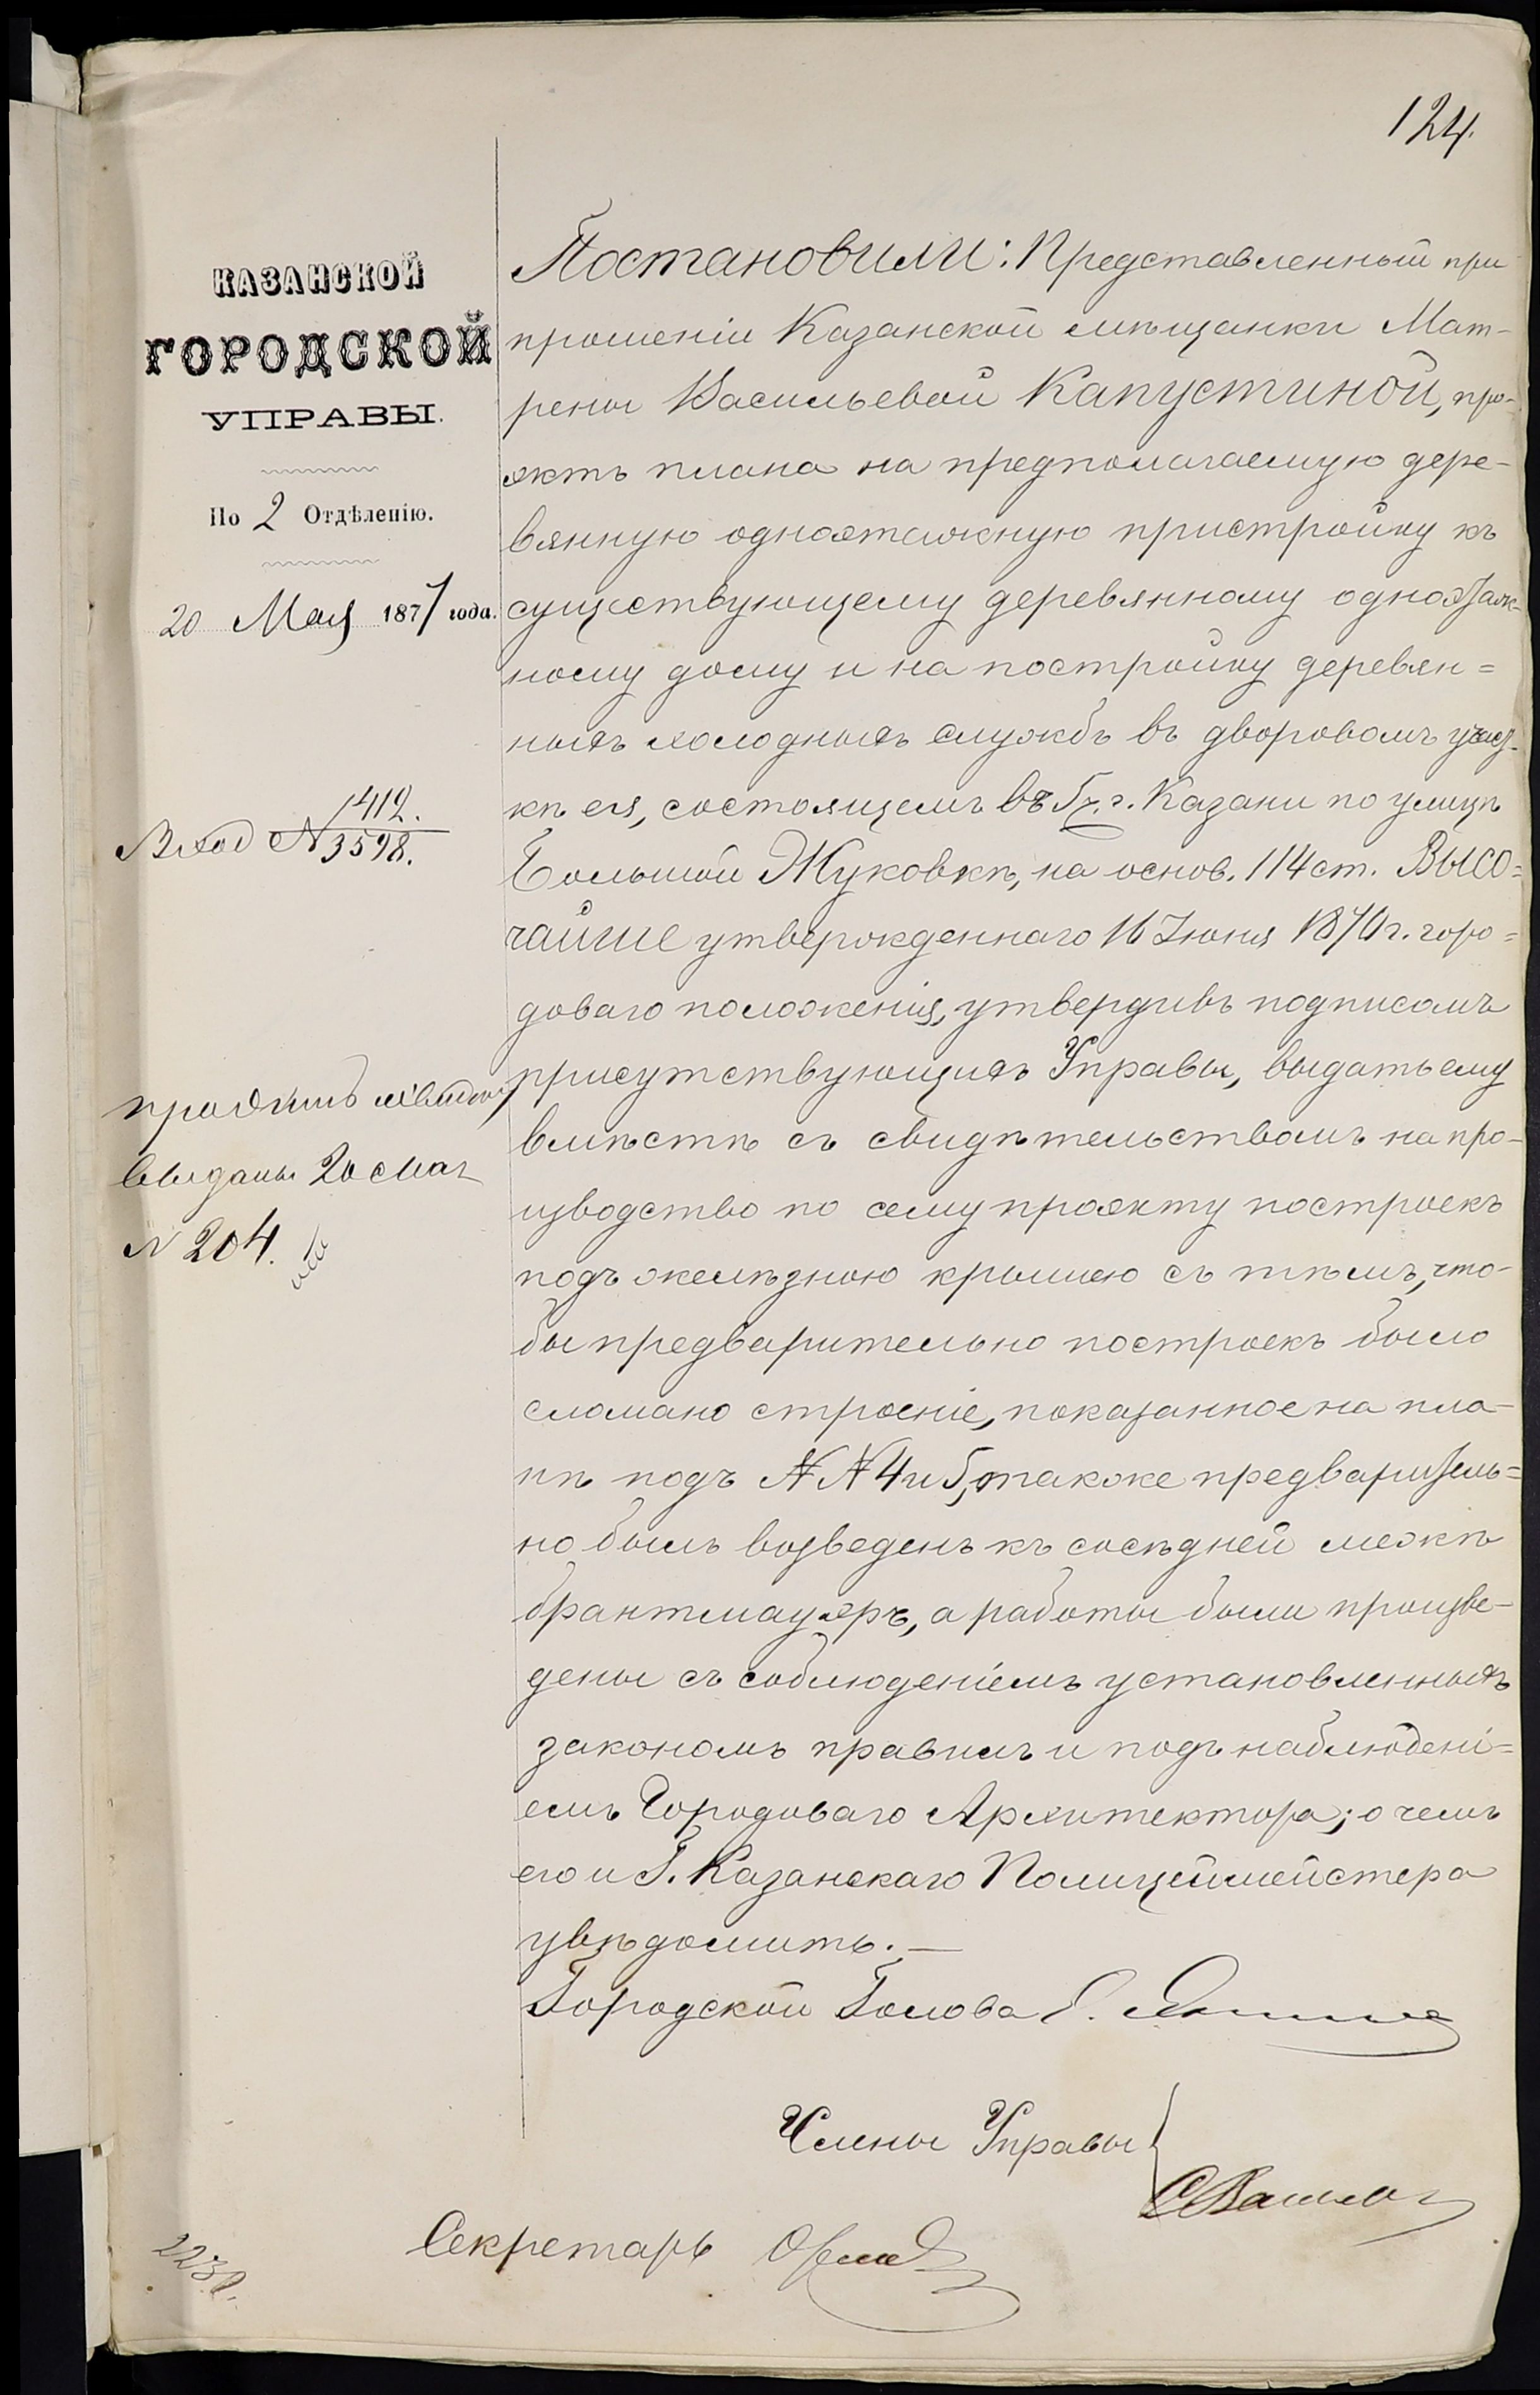 124.
КАЗАНСКОЙ
ГОРОДСКОЙ
УПРАВЫ.
По 2 Отдѣленію.
20 Мая 1877 года.
Вход № 1412.
3598.
выданы 20 Мая
№ 204.
Постановили: Представленный при
прошеніи Казанской мѣщанки Мат-
рены Васильевой Капустиной, про-
эктъ плана на предполагаемую дере-
вянную одноэтажную пристройку къ
существующему деревянному одноэтаж-
ному дому и на постройку деревян=
ныхъ холодныхъ службъ въ дворовомъ участ-
кѣ ея, состоящемъ въ 5 ч. г. Казани по улицѣ
Большой Жуковкѣ, на основ. 114 ст. Высо=
чайше утвержденнаго 16 Іюня 1870 г. горо=
доваго положенія, утвердивъ подписомъ
присутствующихъ Управы, выдать ему
вмѣстѣ съ свидѣтельствомъ на про-
изводство по сему проэкту построекъ
подъ желѣзною крышею съ тѣмъ, что-
бы предварительно построекъ было
сломано строеніе, показанное на пла-
нѣ подъ №№ 4 и 5, также предваритель=
но былъ возведенъ къ сосѣдней межѣ
брантмауэръ, а работы были произве-
дены съ соблюденіемъ установленныхъ
закономъ правилъ и подъ наблюдені=
емъ Городоваго Архитектора; о чемъ
его и Г. Казанскаго Полицеймейстера
увѣдомить. —
Городской Голова Э. Янишев
Члены Управы
Секретарь